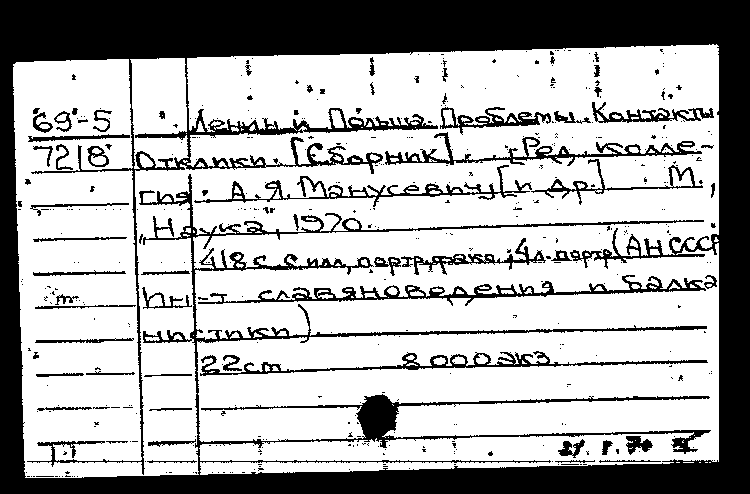 69-5 Ленин и Польша. Проблемы. Контакты.
7218 Отклики. [Сборник]. [Ред. колле-
гия: А. Я. Манусевич [и др.] М.,
„Наука", 1970.
418 с. с илл., портр., факс.; 4 л. портр. (АН СССР
Ин-т славяноведения и балка
нистики)
22 см 8 000 экз.